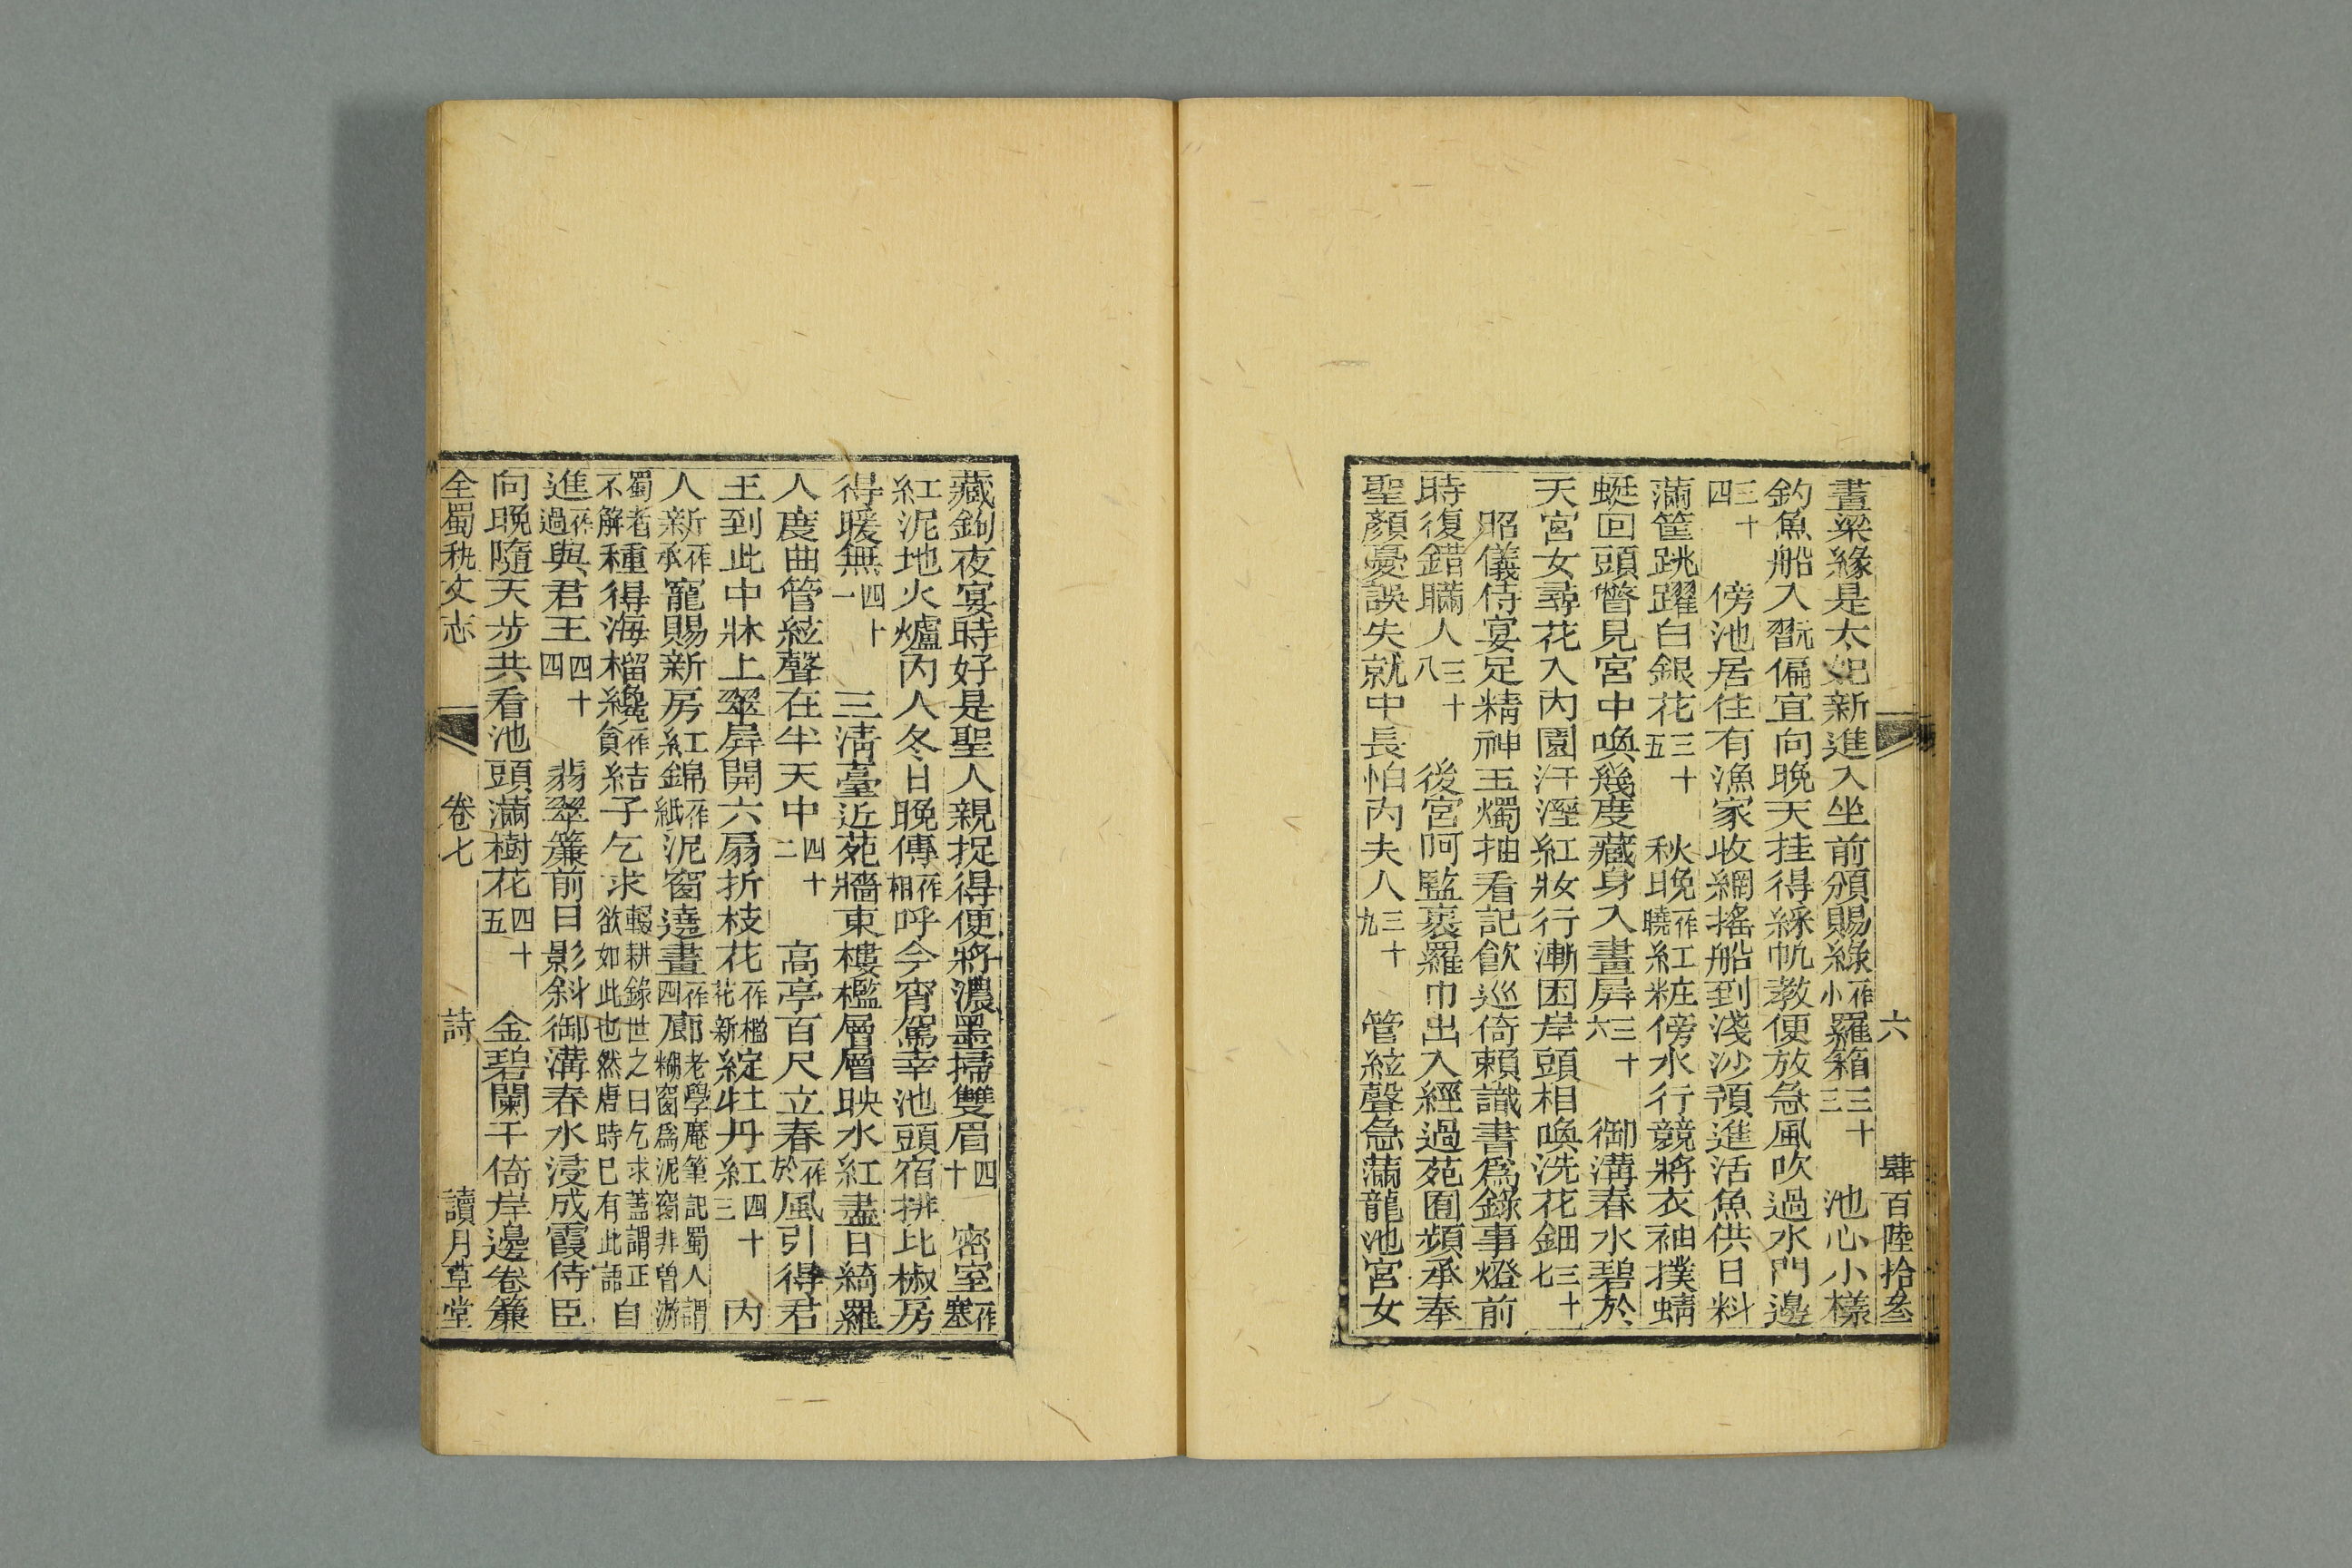 六 肆百陸拾叁
畫梁緣是太妃新進入坐前頒賜綠一作小羅箱三十三 池心小樣
釣魚船入翫偏宜向晚天挂得綵帆教便放急風吹過水門邊
三十四 傍池居住有漁家收網搖船到淺沙預進活魚供日料
滿筐跳躍白銀花三十五 秋晚一作曉紅粧傍水行競將衣袖撲蜻
蜓回頭瞥見宮中喚幾度藏身入畫屏三十六 御溝春水碧於
天宮女尋花入內園汗溼紅妝行漸困岸頭相喚洗花鈿三十七
昭儀侍宴足精神玉燭抽看記飲巡倚賴識書爲錄事燈前
時復錯瞞人三十八 後宮阿監裹羅巾出入經過苑囿頻承奉
聖顏憂誤失就中長怕內夫人三十九 管絃聲急滿龍池宮女
藏鉤夜宴時好是聖人親捉得便將濃墨掃雙眉四十 密室一作塞
紅泥地火爐內人冬日晚傳一作相呼今宵駕幸池頭宿排比椒房
得暖無四十一 三淸臺近苑牆東樓檻層層映水紅盡日綺羅
人度曲管絃聲在半天中四十二 高亭百尺立春一作於風引得君
王到此中牀上翠屏開六扇折枝花一作檻花新綻牡丹紅四十三 內
人新一作承寵賜新房紅錦一作紙泥窗遶畫一作四廊老學庵筆記蜀人謂糊窗爲泥窗非曾游
蜀者不解種得海榴纔一作貪結子乞求輟耕錄世之曰乞求蓋謂正欲如此也然唐時已有此語自
進一作過與君王四十四 翡翠簾前日影斜御溝春水浸成霞侍臣
向晚隨天步共看池頭滿樹花四十五 金碧闌干倚岸邊卷簾
全蜀秇文志 卷七 詩 讀月草堂